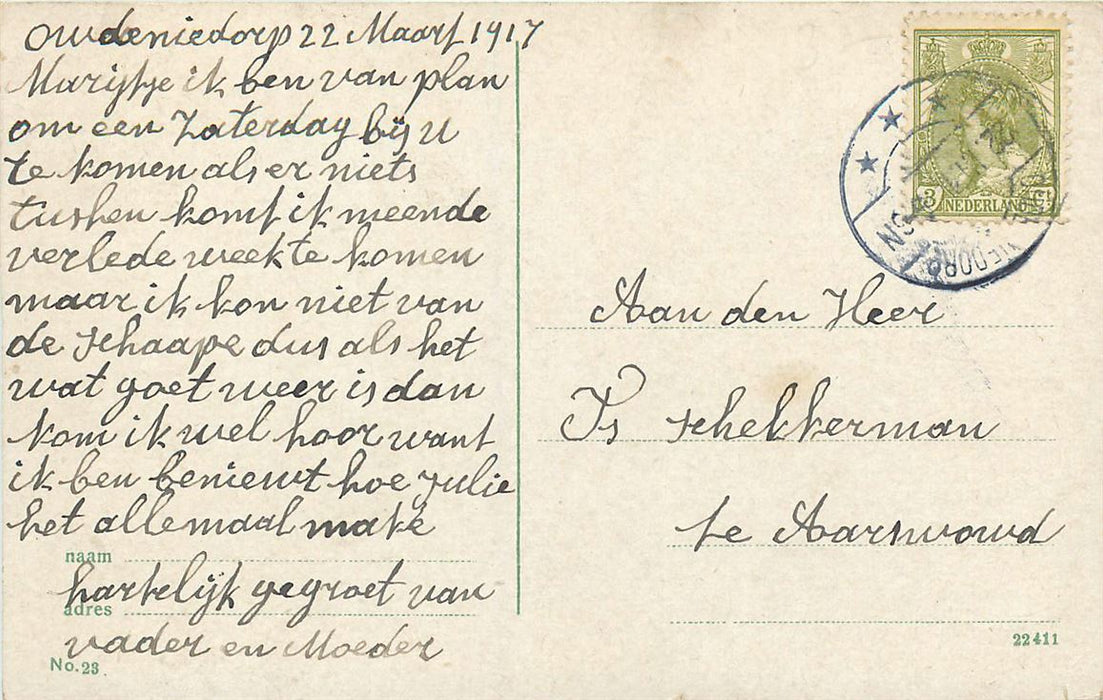 Oudeniedorp 22 Maart 1917
Marijtje ik ben van plan
om een Zaterdag bij U
te komen als er niets
tushen komt ik meende
verlede week te komen
maar ik kon niet van
de schaape dus als het
wat goet weer is dan
kom ik wel hoor want
ik ben beniewt hoe julie
het allemaal make
naam
hartelijk gegroet van
adres
vader en Moeder
No. 23
3 NEDERLAND
Aan den Heer
Js schekkerman
te Aarswoud
22411